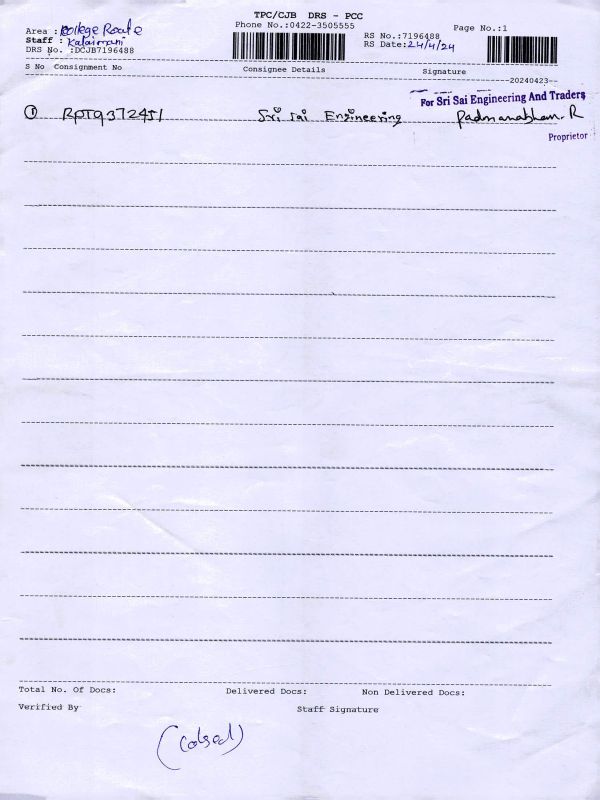 TPC/CJB DRS - PCC
Phone No.:0422-3505555
Page No.:1
Area : College Route
Staff : Kalaimani
DRS No. :DCJB7196488
RS No.:7196488
RS Date:24/4/24
S No Consignment No Consignee Details Signature
20240423
For Sri Sai Engineering And Traders
① RPT9372451 Sri Sai Engineering Padmanabhan.R
Proprietor
Total No. Of Docs: Delivered Docs: Non Delivered Docs:
Verified By Staff Signature